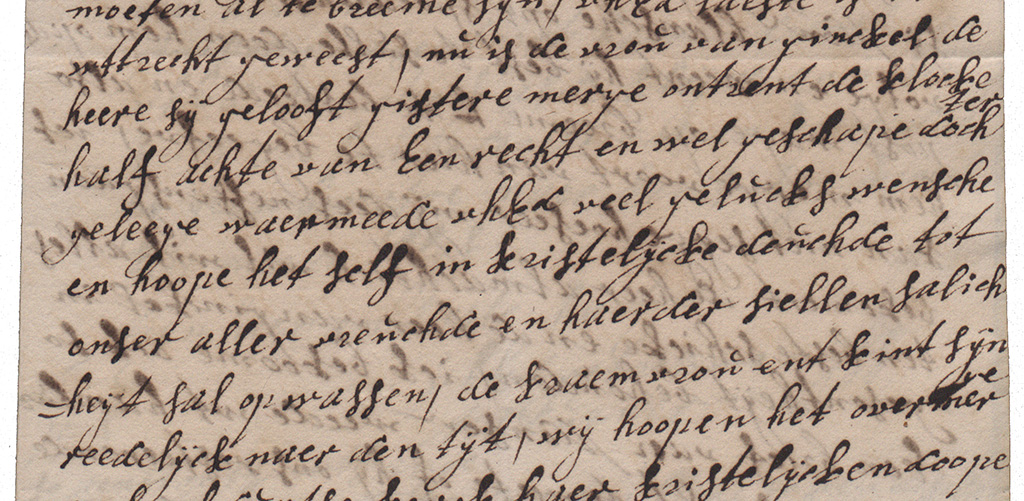 moeten al te breeme sijn, uhEd laeste
uttrecht geweest, nu is de vrou van ginckel de
heere sij gelooft gistere merge ontrent de klocke
half achte van Een recht en wel geschape doch ter
geleege waermeede uhEd veel gelucks wensche
en hoope het self in kristelijcke deuchde tot
onser aller vreuchde en haerder siellen salich
=heijt sal opwassen, de kraemvrou ent kint sijn
reedelijck naer den tijt, wij hoopen het over
haer kristelijcken doope